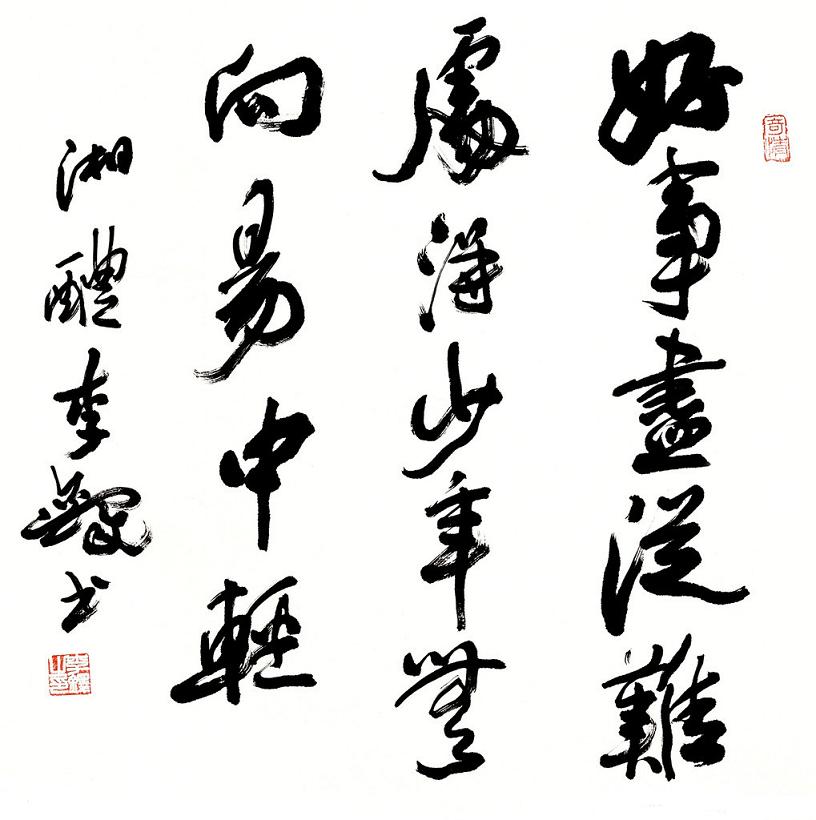 好事盡從難
處得少年無
向易中輕
湘醴李鐸書